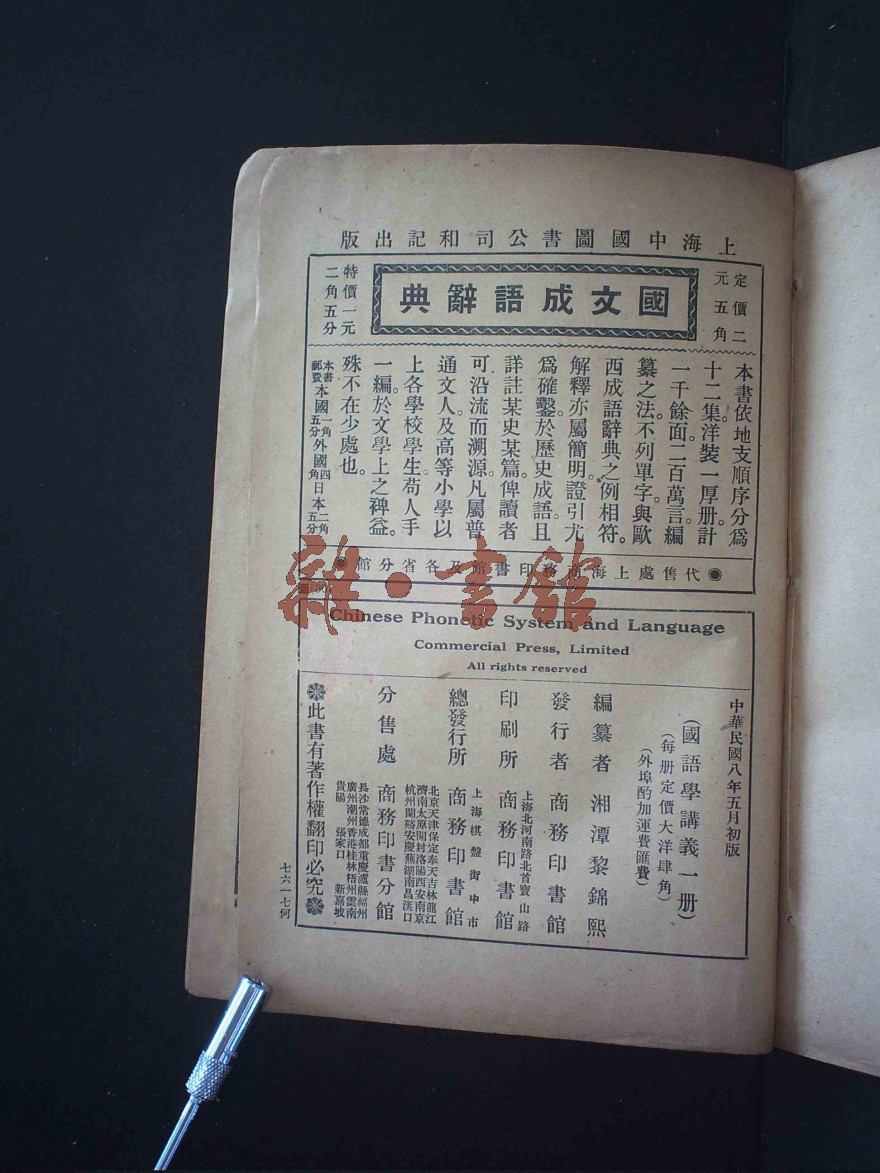 上海中國圖書公司和記出版
定價二
元五角
國文成語辭典
特價一元
二角五分
本書依地支順序分爲
十二集。洋裝一厚册。計
一千餘面。二百萬言。編
纂之法。不列單字。與歐
西成語辭典之例相符。
解釋亦屬簡明。證引尤
爲確鑿。於歷史成語。且
詳註某史某篇。俾讀者
可沿流而溯源。凡屬普
通文人。及高等小學以
上各學校學生。苟人手
一編。於文學上之裨益。
殊不在少處也。
本書郵費 本國一角五分 外國四角 日本二角五分
●代售處上海商務印書館及各省分館●
Chinese Phonetic System and Language
Commercial Press, Limited
All rights reserved
中華民國八年五月初版
(國語學講義一册)
(每册定價大洋肆角)
(外埠酌加運費匯費)
編纂者 湘潭黎錦熙
發行者 商務印書館
上海北河南路北首寶山路
印刷所 商務印書館
上海棋盤街中市
總發行所 商務印書館
北京天津保定奉天吉林龍江
濟南太原開封洛陽西安南京
杭州蘭谿安慶蕪湖南昌漢口
分售處 商務印書分館
長沙常德成都重慶瀘縣福州
廣州潮州香港桂林梧州雲南
貴陽 張家口 新嘉坡
此書有著作權翻印必究
七六一七何
雜·書館